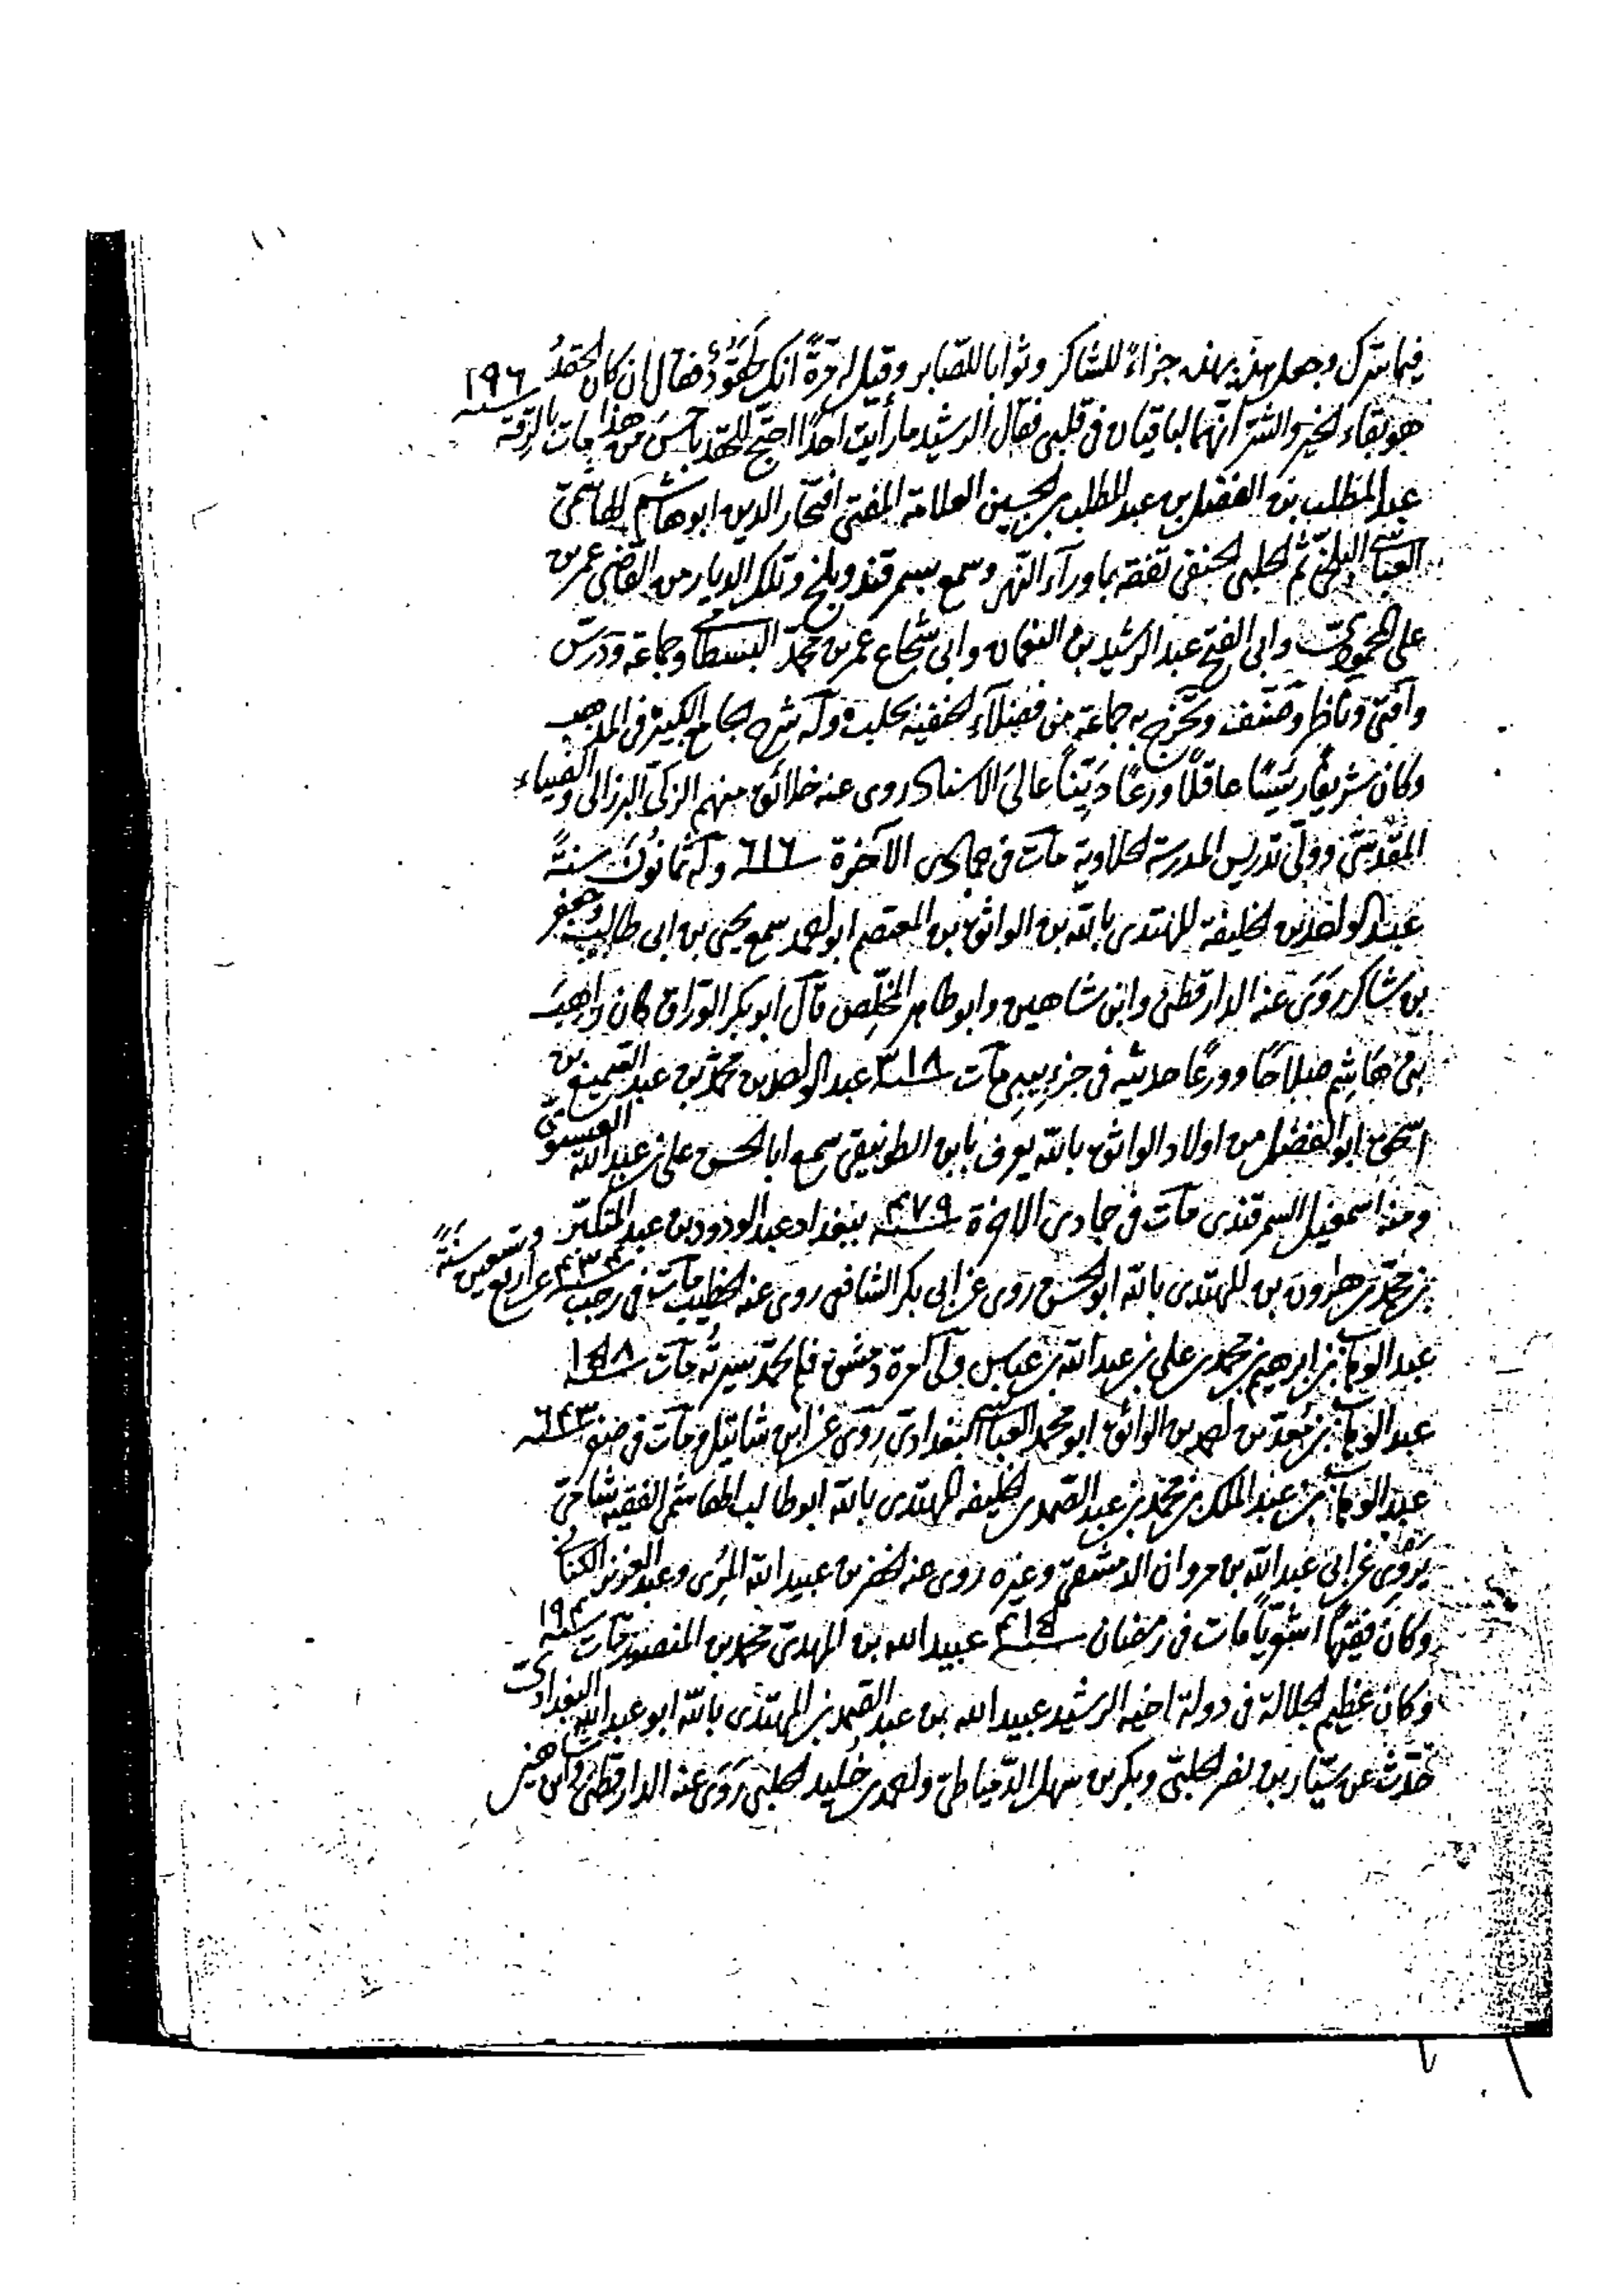 فيما سرك وجعل هذه بهذه جزاءً للشاكر وثوابا للصابر وقيل له مرةً انك لحقودٌ فقال ان كان الحقدُ
هو بقاء الخير والشر انهما لباقيان في قلبي فقال الرشيد ما رأيت احدًا احتج للحقد باحسن من هذا مات بالرقة سنة ١٩٦
عبد المطلب بن الفضل بن عبد المطلب بن الحسين العلامة المفتي افتخار الدين ابو هاشم الهاشمي
العباسي البلخي ثم الحلبي الحنفي تفقه بما ورآء النهر وسمع بسمرقند وبلخ وتلك الديار من القاضي عمر بن
على المحمودي وابى الفتح عبد الرشيد بن النعمان وابى شجاع عمر بن محمد البسطامي وجماعة ودرس
وأفتى وناظر وصنف وتخرج به جماعة من فضلآء الحنفية بحلب وله شرح الجامع الكبير في المذهب
وكان شريفًا رئيسًا عاقلًا ورعًا ديّنًا عالي الاسناد روى عنه خلائق منهم الزكى البرزالى والضياء
المقدسي وولى تدريس المدرسة الحلاوية مات في جمادى الآخرة سنة ٦١٦ وله ثمانون سنةً
عبد الواحد بن الخليفة المهتدى بالله بن الواثق بن المعتصم ابو احمد سمع يحيى بن ابى طالب وجعفر
بن شاكر روى عنه الدارقطني وابن شاهين وابو طاهر المخلّص قال ابو بكر الوراق كان راهب
بنى هاشم صلاحًا وورعًا حديثه في جزء بيبي مات سنة ٣١٨ عبد الواحد بن محمد بن عبد السميع بن
اسحق ابو الفضل من اولاد الواثق بالله يعرف بابن الطوبيقى سمع ابا الحسن على بن عبد الله العيسوى
ومنه اسمعيل السمرقندى مات في جمادى الاخرة سنة ٤٧٩ ببغداد عبد الودود بن عبد المتكبر
بن محمد بن هارون بن المهتدى بالله ابو الحسن روى عن ابى بكر الشافعى روى عنه الخطيب مات في رجب سنة ٤٣٤ عن اربع وتسعين سنةً
عبد الوهاب بن ابرهيم بن محمد بن على بن عبد الله بن عباس ولى امرة دمشق فلم تحمد سيرته مات سنة ١٥٨
عبد الوهاب بن معد بن احمد بن الواثق ابو محمد العباسي البغدادى روى عن ابن شاتيل ومات في صفر سنة ٦٤٣
عبد الوهاب بن عبد الملك بن محمد بن عبد الصمد بن الخليفة المهتدى بالله ابو طالب الهاشمي الفقيه شامي
يروى عن ابى عبد الله بن مروان الدمشقي وغيره روى عنه الخضر بن عبيد الله المرى وعبد العزيز الكتانى
وكان فقيهًا اشعريًا مات في رمضان سنة ٤١٥ عبيد الله بن المهدى محمد بن المنصور مات سنة ١٩٤
وكان عظيم الجلالة في دولة اخيه الرشيد عبيد الله بن عبد الصمد بن المهتدى بالله ابو عبد الله البغدادى
حدّث عن سيّار بن نصر الحلبي وبكر بن سهل الدّمياطى واحمد بن خليد الحلبى روى عنه الدارقطني وابن شاهين